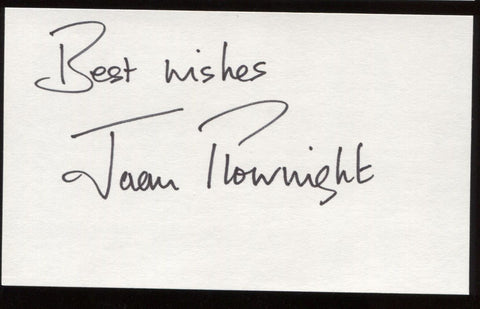 Best wishes
Joan Plowright